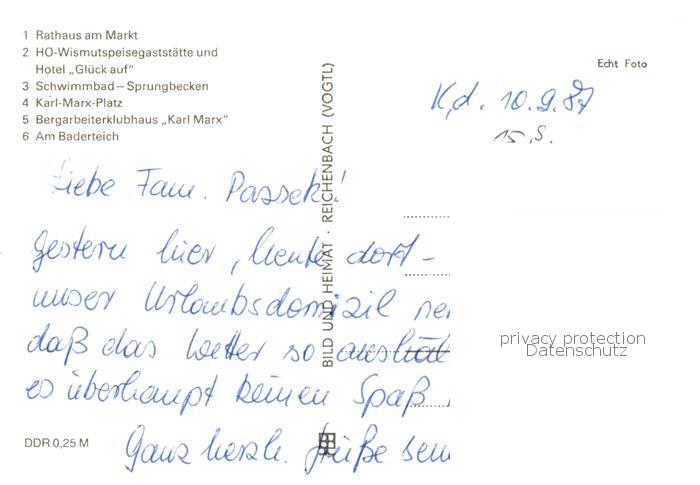 1 Rathaus am Markt
2 HO-Wismutspeisegaststätte und
Hotel „Glück auf“
3 Schwimmbad – Sprungbecken
4 Karl-Marx-Platz
5 Bergarbeiterklubhaus „Karl Marx“
6 Am Baderteich
Echt Foto
K,d. 10.9.87
15.9.
Liebe Fam. Passek!
Gestern hier, heute dort –
unser Urlaubsdomizil
daß das Wetter so
es überhaupt keinen Spaß
Ganz herzl. Grüße
BILD UND HEIMAT · REICHENBACH (VOGTL)
DDR 0,25 M
privacy protection
Datenschutz